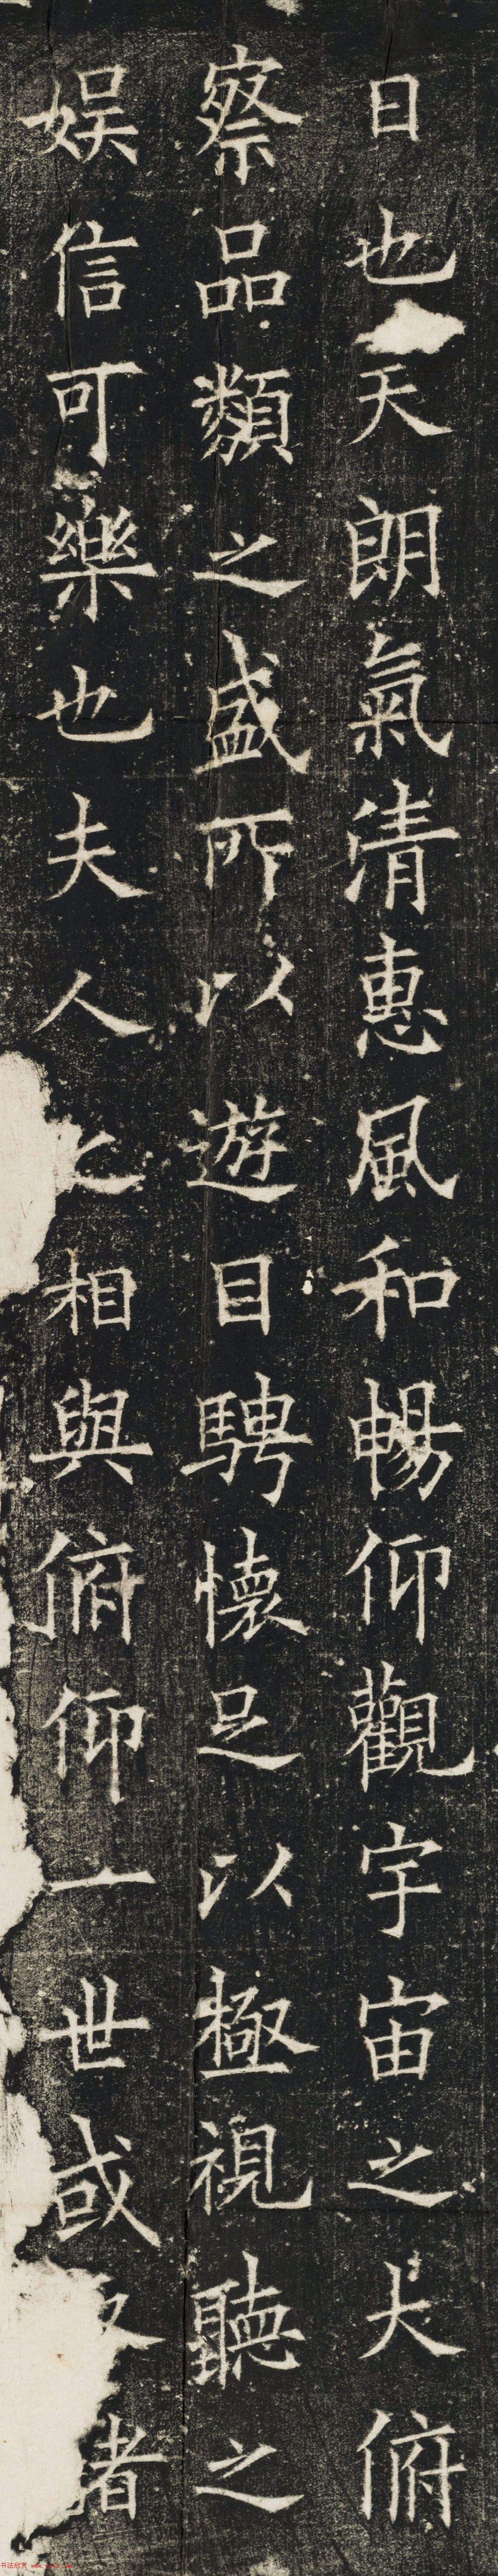 日也天朗氣清惠風和暢仰觀宇宙之大俯
察品類之盛所以遊目騁懷足以極視聽之
娛信可樂也夫人之相與俯仰一世或諸
书法欣赏